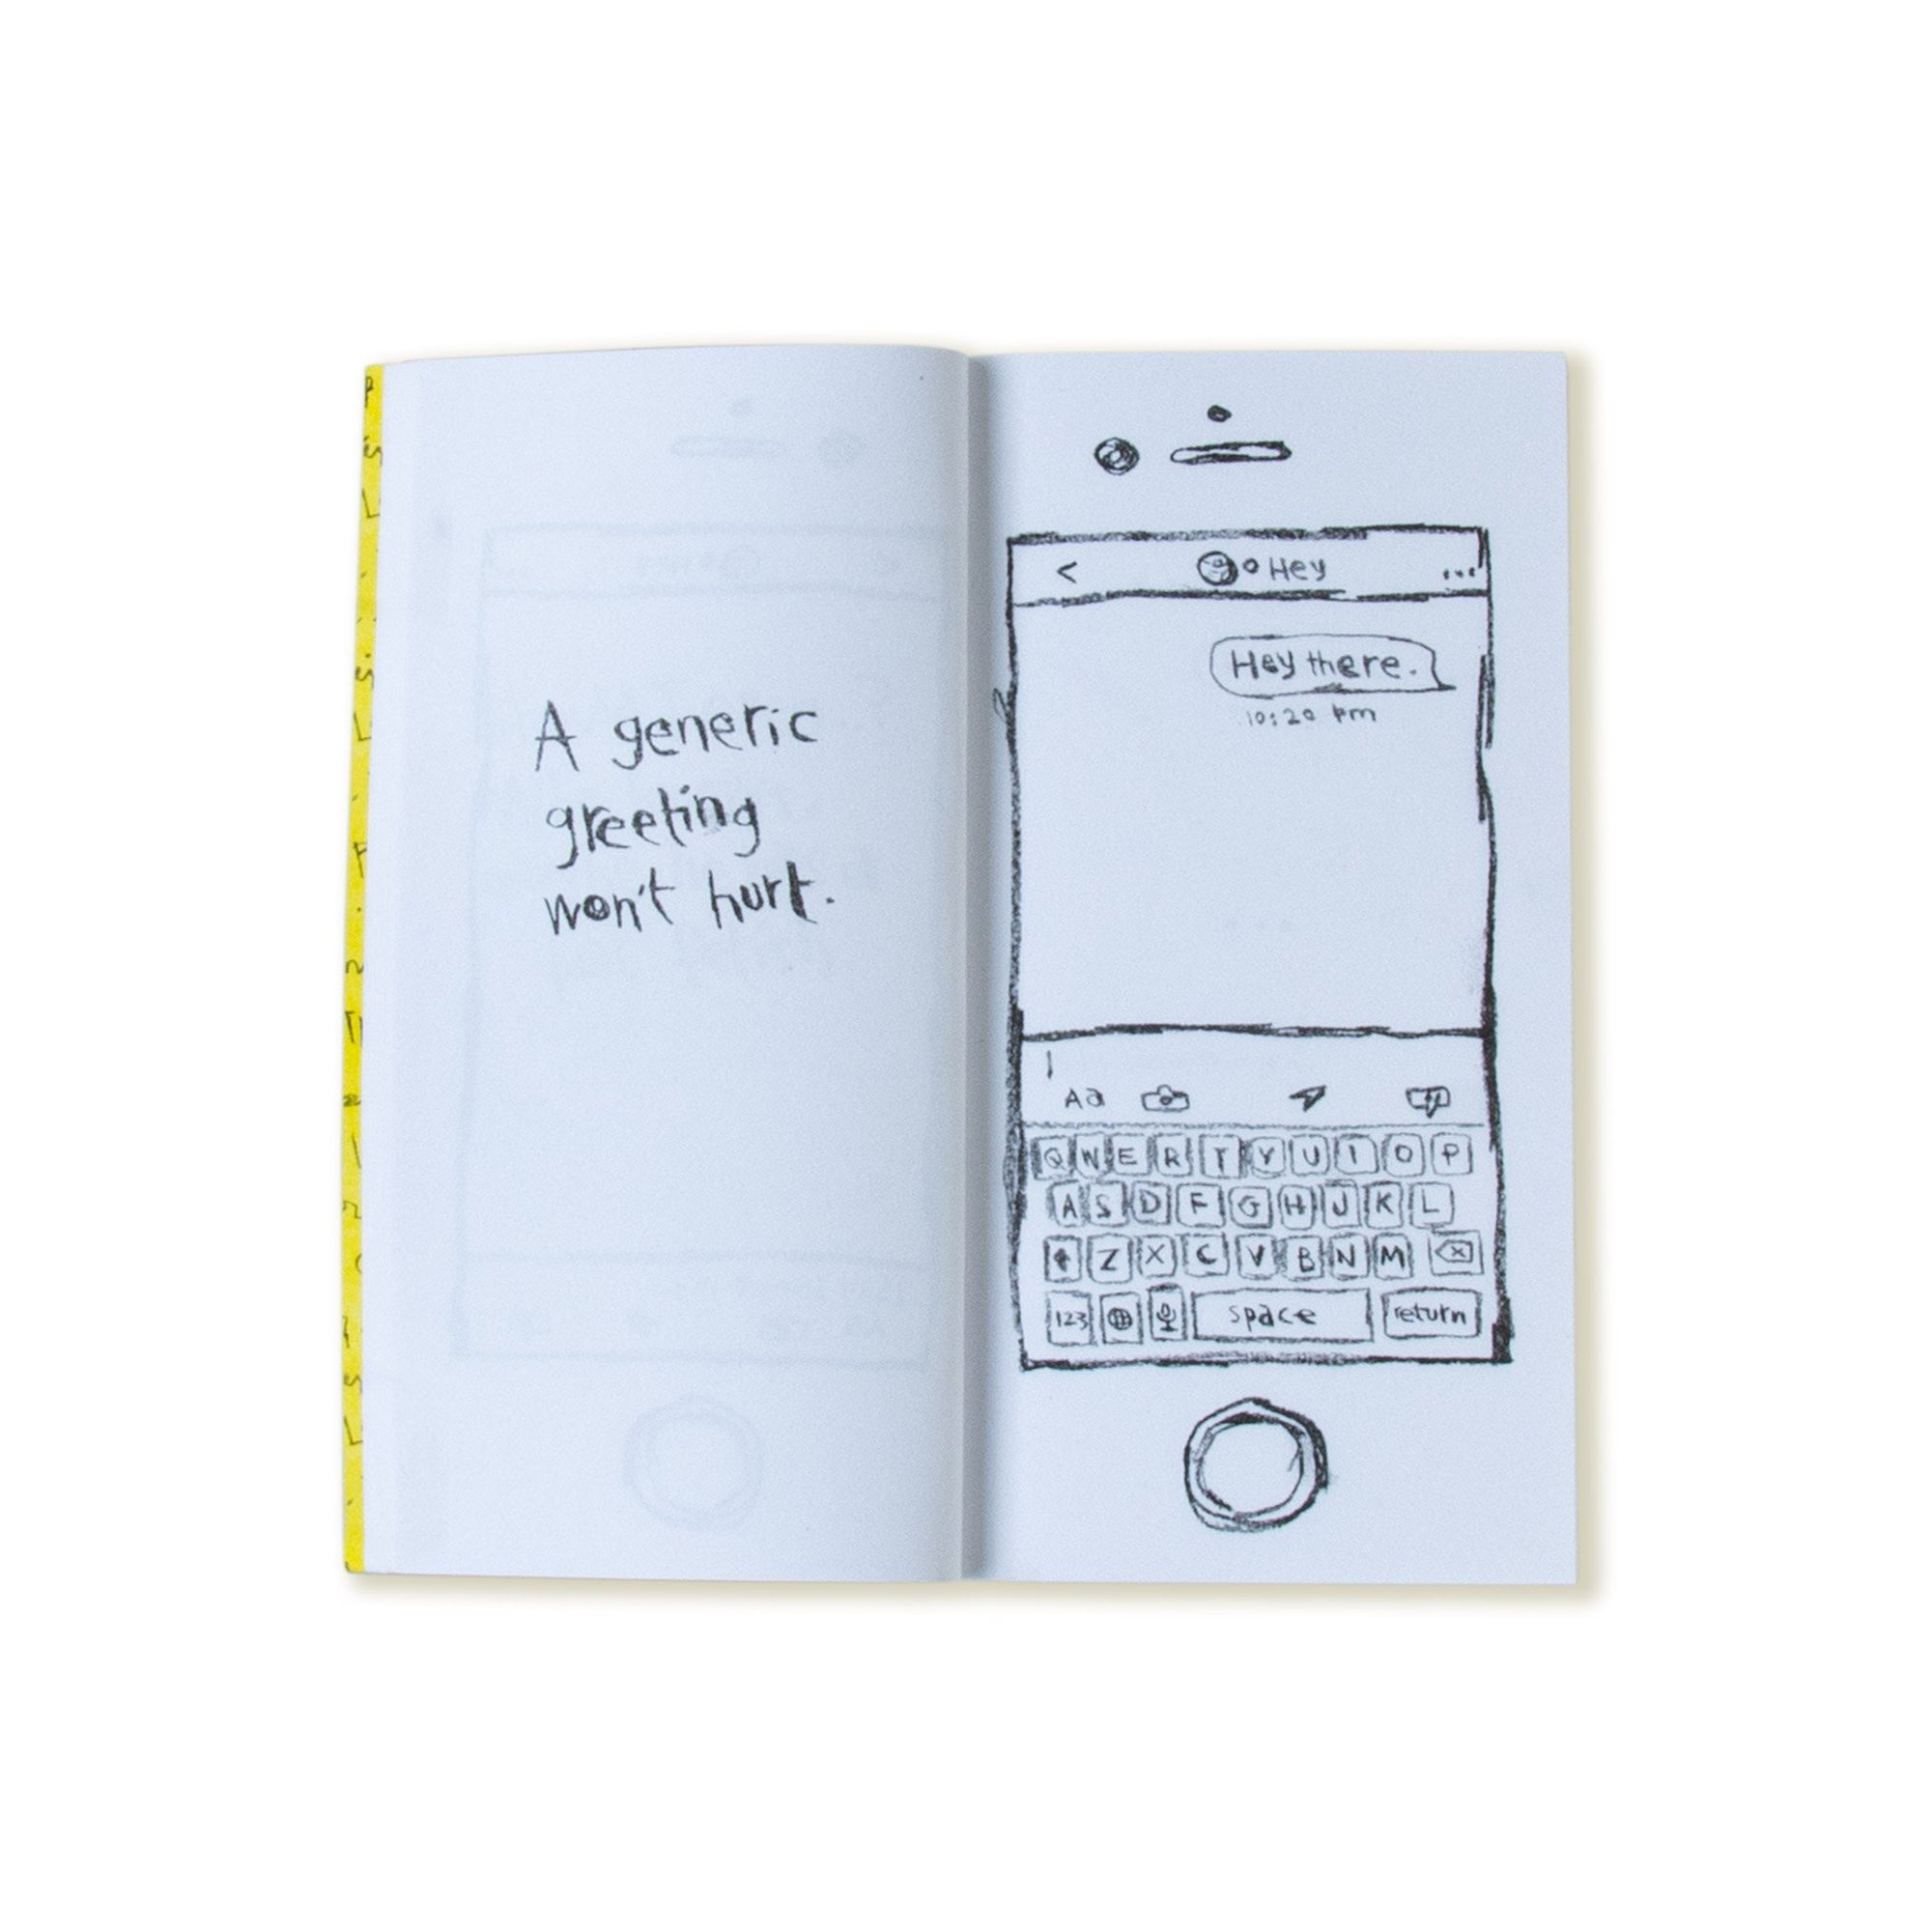 A generic
greeting
won't hurt.
< Hey ...
Hey there.
10:20 pm
Aa
Q W E R T Y U I O P
A S D F G H J K L
Z X C V B N M
123 space return